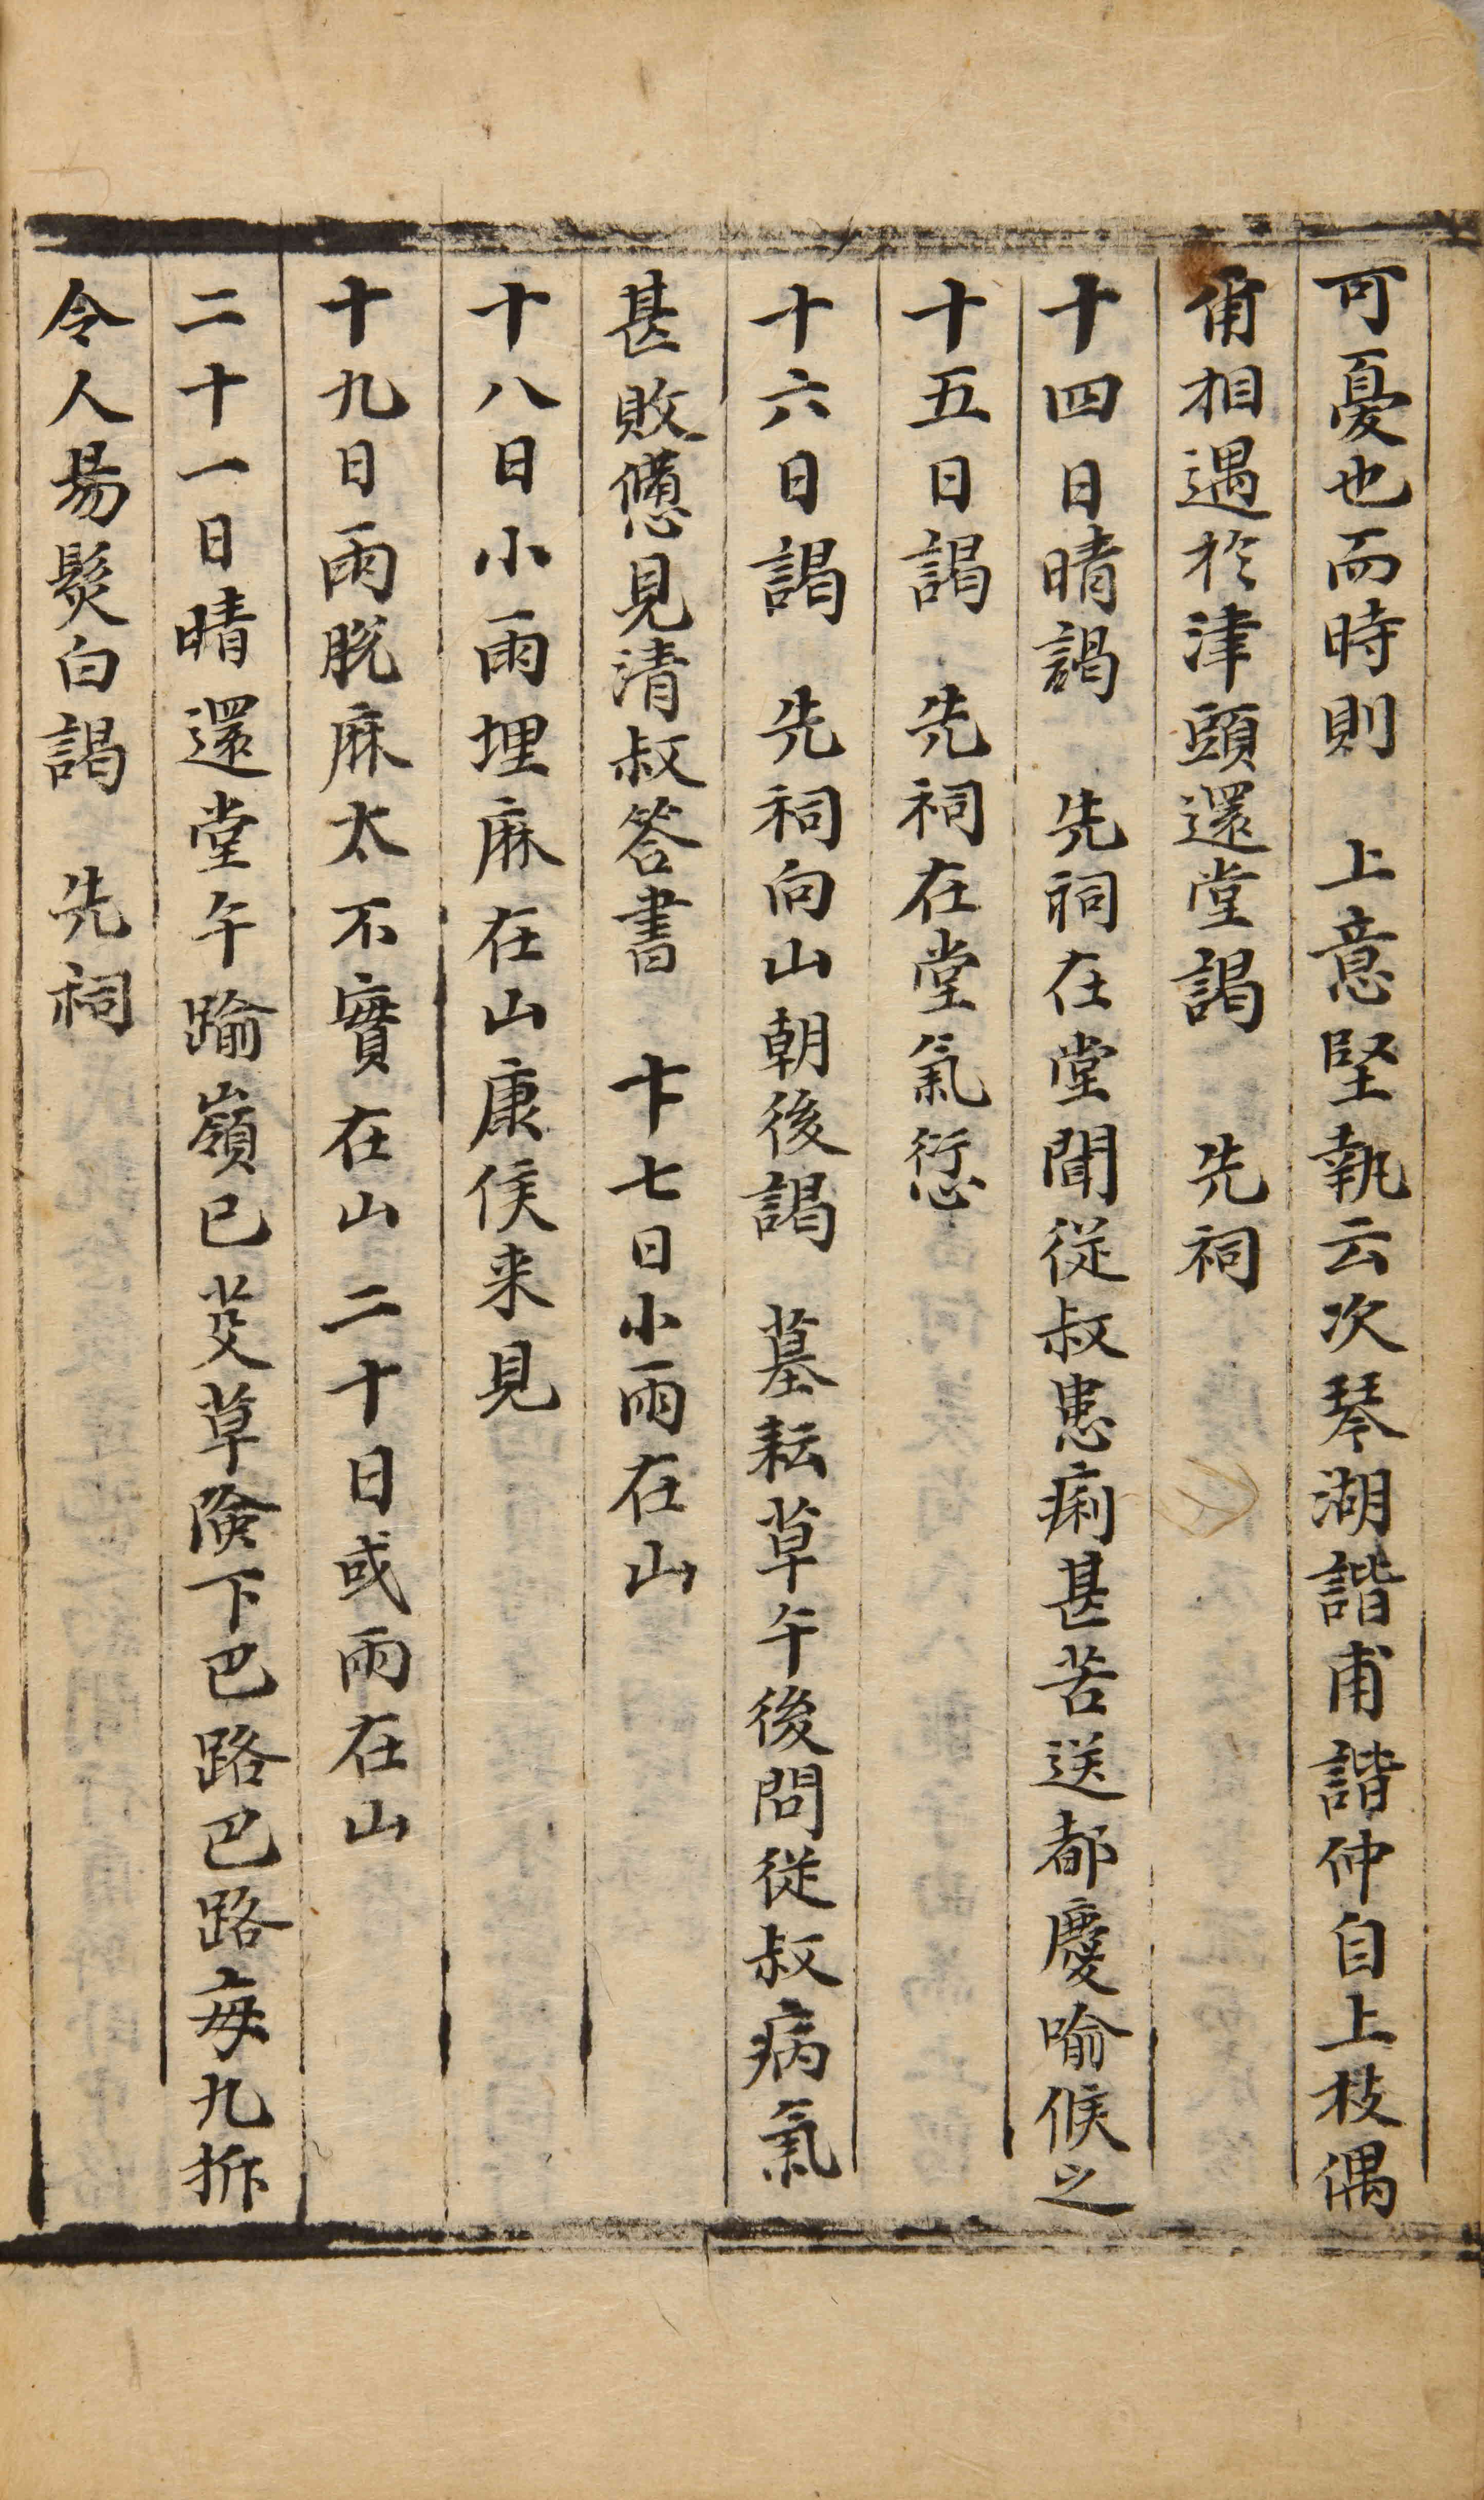 可憂也而時則 上意堅執云次琴湖諧甫諧仲自上枝偶
甭相遇於津頭還堂謁 先祠
十四日晴謁 先祠在堂聞從叔患痢甚苦送都慶喻候之
十五日謁 先祠在堂氣愆
十六日謁 先祠向山朝後謁 墓耘草午後問從叔病氣
甚敗憊見清叔答書 十七日小雨在山
十八日小雨埋麻在山康侯来見
十九日雨脫麻太不實在山 二十日或雨在山
二十一日晴還堂午踰嶺已芟草險下巴路巴路每九拆
令人易髮白謁 先祠